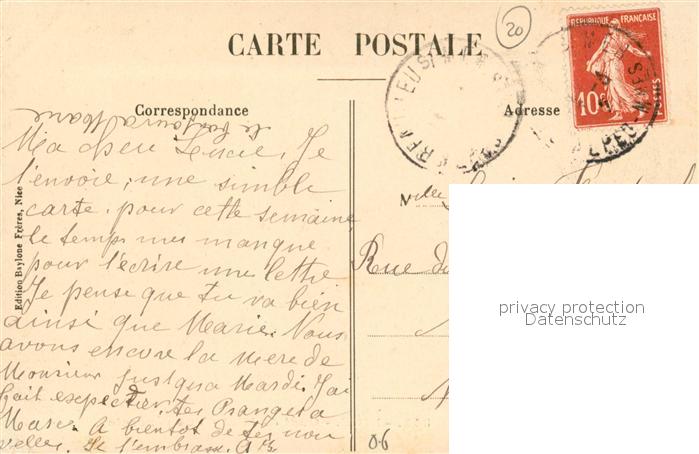 20
CARTE POSTALE
REPUBLIQUE FRANÇAISE
10c
POSTES
BEAULIEU S/ MER
Correspondance
Adresse
le bonjour a Marie
Ma chere Lucie, Je
t'envoie, une simble
carte. pour cette semaine
le temps me manque
pour t'écrire une lettre
Je pense que tu va bien
ainsi que Marie. Nous
avons encore la mere de
Monsieur jusqua Mardi. J'ai
fait expedier tes Oranges a
Marie. A bientot de tes nou
velles. Je t'embrasse.
Edition Baylone Frères, Nice
Mlle
Rue du
06
privacy protection
Datenschutz